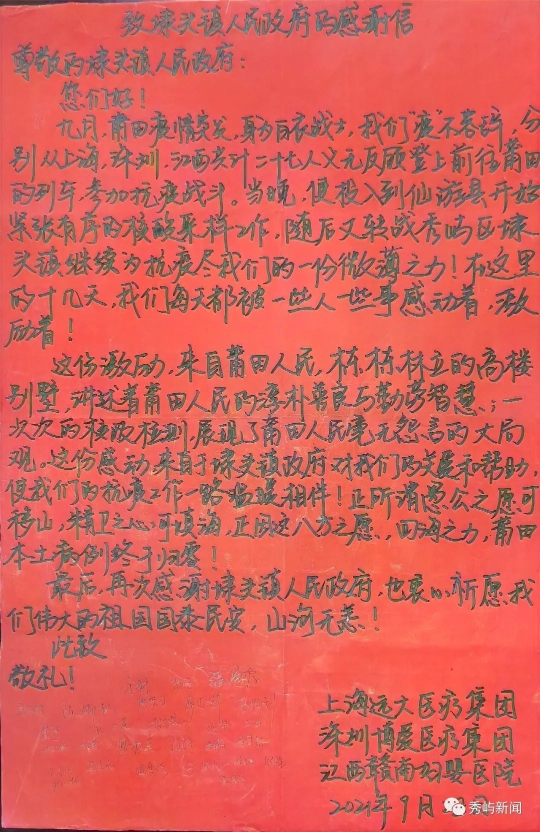 致埭头镇人民政府的感谢信
尊敬的埭头镇人民政府:
您们好!
九月,莆田疫情突发,身为白衣战士,我们“疫”不容辞,分
别从上海,深圳,江西共计二十七人义无反顾登上前往莆田
的列车,参加抗疫战斗。当晚,便投入到仙游县开始
紧张有序的核酸采样工作,随后又转战秀屿区埭
头镇继续为抗疫尽我们的一份微薄之力!在这里
的十几天,我们每天都被一些人一些事感动着,激
励着!
这份激励,来自莆田人民,栋栋林立的高楼
别墅,讲述着莆田人民的淳朴善良与勤劳智慧;一
次次的核酸检测,展现了莆田人民毫无怨言的大局
观。这份感动,来自于埭头镇政府对我们的关爱和帮助,
使我们的抗疫工作一路温暖相伴!正所谓愚公之愿可
移山,精卫之心可填海,正因这八方之愿,四海之力,莆田
本土病例终于归零!
最后,再次感谢埭头镇人民政府,也衷心祈愿我
们伟大的祖国国泰民安,山河无恙!
此致
敬礼!
上海远大医疗集团
深圳博爱医疗集团
江西赣南妇婴医院
2021年9月 日
秀屿新闻